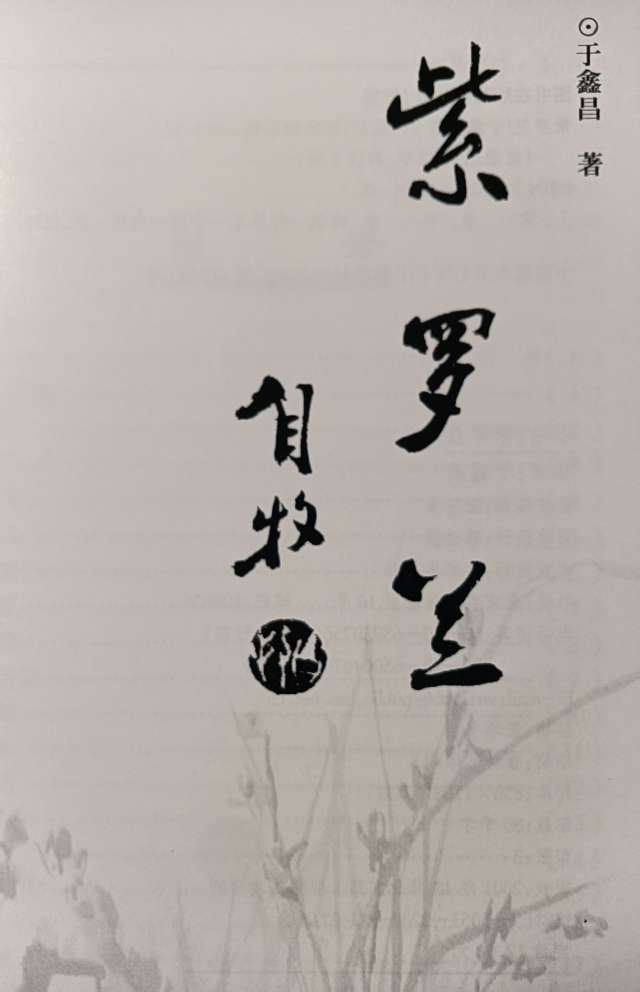 ⊙于鑫昌 著
紫罗兰
自牧